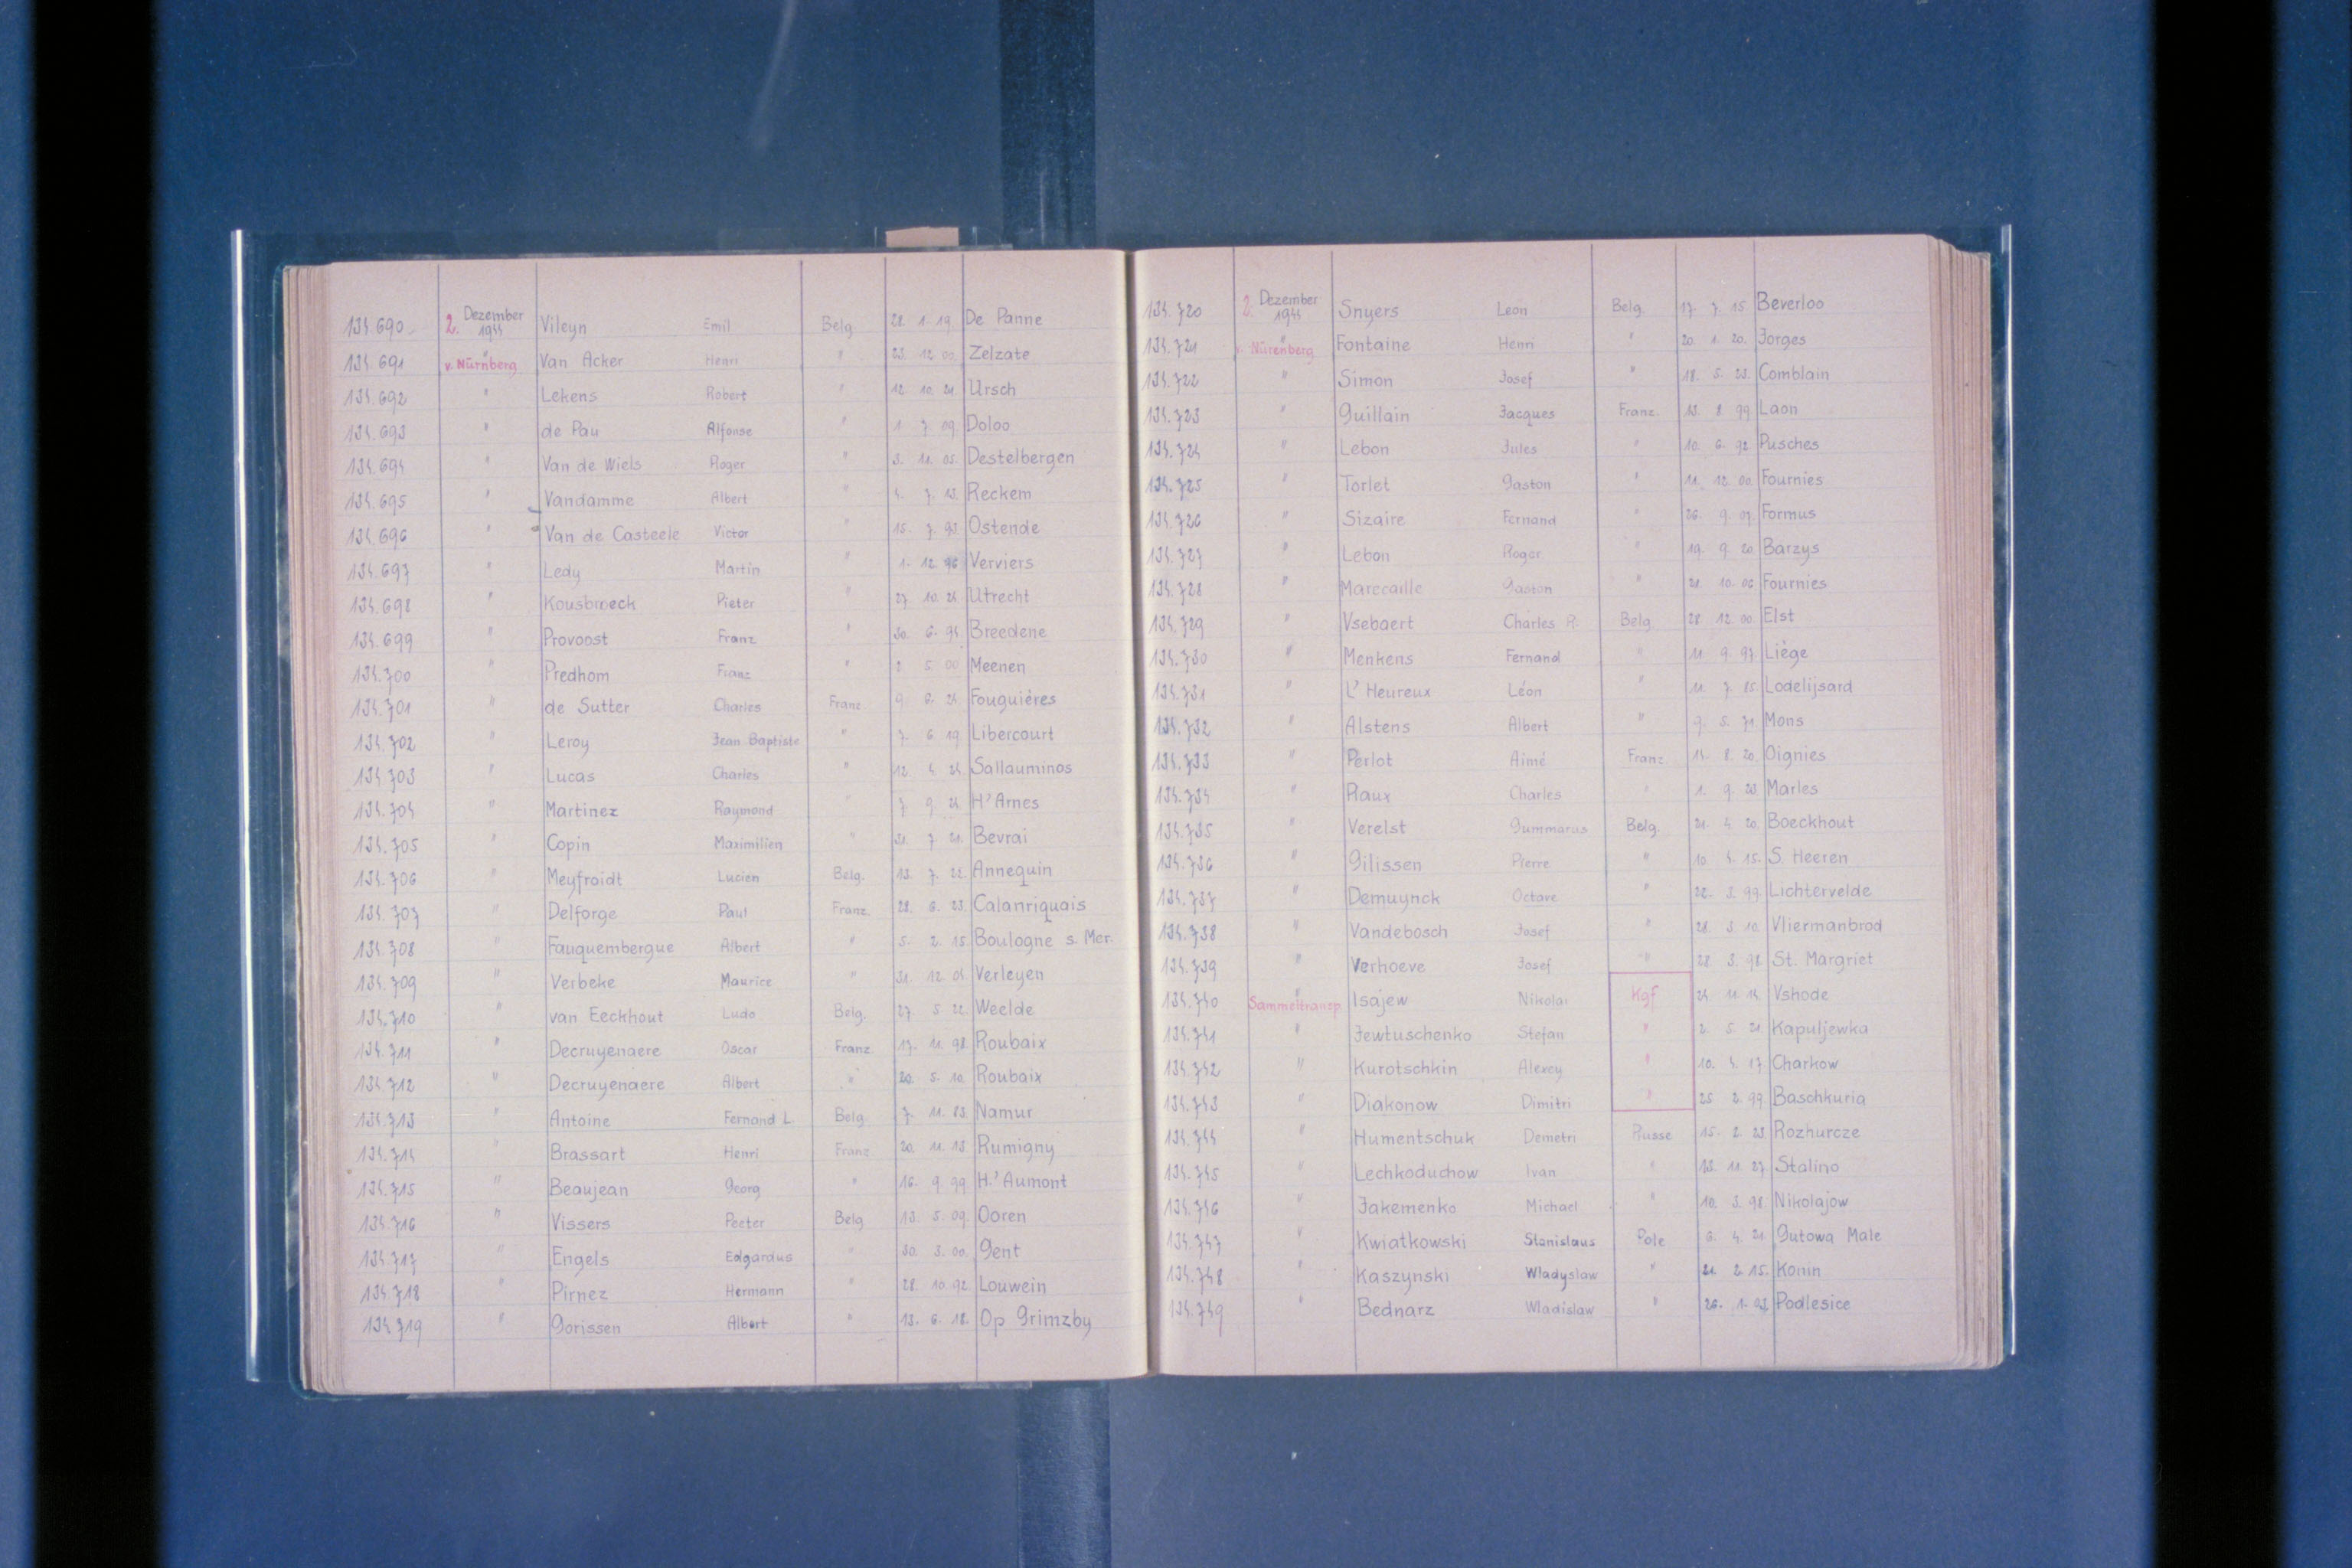 134.690 2. Dezember 1944 Vileyn Emil Belg. 28. 1. 19. De Panne
134.691 " v. Nürnberg Van Acker Henri " 23. 12. 00. Zelzate
134.692 " Lekens Robert " 12. 10. 21. Ursch
134.693 " de Pau Alfonse " 1. 7. 09. Doloo
134.694 " Van de Wiels Roger " 3. 11. 05. Destelbergen
134.695 " Vandamme Albert " 4. 7. 13. Reckem
134.696 " Van de Casteele Victor " 15. 7. 93. Ostende
134.697 " Ledy Martin " 1. 12. 96 Verviers
134.698 " Kousbroeck Pieter " 27. 10. 24. Utrecht
134.699 " Provoost Franz " 30. 6. 94. Breedene
134.700 " Predhom Franz " 2 5. 00 Meenen
134.701 " de Sutter Charles Franz. 9. 6. 24. Fouguières
134.702 " Leroy Jean Baptiste " 7. 6. 19. Libercourt
134.703 " Lucas Charles " 12. 4. 24. Sallauminos
134.704 " Martinez Raymond " 7. 9. 24. H'Arnes
134.705 " Copin Maximilien " 31. 7. 21. Bevrai
134.706 " Meyfroidt Lucien Belg. 13. 7. 22. Annequin
134.707 " Delforge Paul Franz. 28. 6. 23. Calanriquais
134.708 " Fauquembergue Albert " 5. 2. 15. Boulogne s. Mer.
134.709 " Verbeke Maurice " 31. 12. 04. Verleyen
134.710 " van Eeckhout Ludo Belg. 27. 5. 22. Weelde
134.711 " Decruyenaere Oscar Franz. 17. 11. 98. Roubaix
134.712 " Decruyenaere Albert " 20. 5. 10. Roubaix
134.713 " Antoine Fernand L. Belg. 7. 11. 83. Namur
134.714 " Brassart Henri Franz 20. 11. 13 Rumigny
134.715 " Beaujean Georg " 16. 9. 99. H.'Aumont
134.716 " Vissers Peeter Belg. 13. 5. 09. Ooren
134.717 " Engels Edgardus " 30. 3. 00. Gent
134.718 " Pirnez Hermann " 28. 10. 92. Louwein
134.719 " Gorissen Albert " 13. 6. 18. Op Grimzby
134.720 2. Dezember 1944 Snyers Leon Belg. 17. 7. 15 Beverloo
134.721 " v. Nürenberg Fontaine Henri " 20. 1. 20. Jorges
134.722 " Simon Josef " 18. 5. 23. Comblain
134.723 " Guillain Jacques Franz. 13. 8. 99. Laon
134.724 " Lebon Jules " 10. 6. 92. Pusches
134.725 " Torlet Gaston " 11. 12. 00. Fournies
134.726 " Sizaire Fernand " 26. 9. 07. Formus
134.727 " Lebon Roger " 19. 9. 20. Barzys
134.728 " Marecaille Gaston " 21. 10. 06. Fournies
134.729 " Vsebaert Charles R. Belg. 28. 12. 00. Elst
134.730 " Menkens Fernand " 11. 9. 97. Liège
134.731 " L'Heureux Léon " 11. 7. 85. Lodelijsard
134.732 " Alstens Albert " 9. 5. 71 Mons
134.733 " Perlot Aimé Franz. 14. 8. 20. Oignies
134.734 " Raux Charles " 1. 9. 23. Marles
134.735 " Verelst Gummarus Belg. 21. 4. 20. Boeckhout
134.736 " Gilissen Pierre " 10. 4. 15. S. Heeren
134.737 " Demuynck Octave " 22. 3. 99. Lichtervelde
134.738 " Vandebosch Josef " 28. 3. 10. Vliermanbrod
134.739 " Verhoeve Josef " 28. 3. 98. St. Margriet
134.740 " Sammeltransp. Isajew Nikolai Kgf 24. 11. 14. Vshode
134.741 " Jewtuschenko Stefan " 2. 5. 21. Kapuljewka
134.742 " Kurotschkin Alexey " 10. 4. 17. Charkow
134.743 " Diakonow Dimitri " 25. 2. 99. Baschkuria
134.744 " Humentschuk Demetri Russe 15. 2. 23. Rozhurcze
134.745 " Lechkoduchow Ivan " 23. 11. 27. Stalino
134.746 " Jakemenko Michael " 10. 3. 98. Nikolajow
134.747 " Kwiatkowski Stanislaus Pole 6. 4. 21. Gutowa Male
134.748 " Kaszynski Wladyslaw " 21. 2. 15. Konin
134.749 " Bednarz Wladislaw " 26. 1. 03. Podlesice